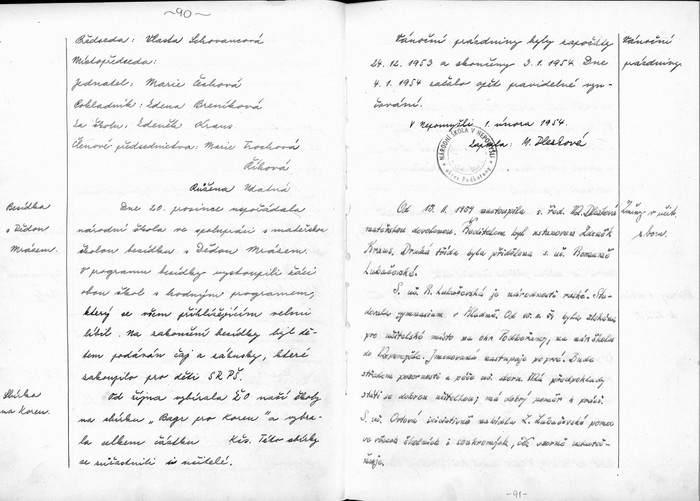 ~90~
Předseda: Vlasta Schovancová
Místopředseda:
Jednatel: Marie Čechová
Pokladník: Zdena Breníková
Za školu: Zdeněk Kraus
Členové předsednictva: Marie
Říková
Růžena Udatná
Besídka
s Dědou
Mrázem.
Dne 20. prosince uspořádala
národní škola ve spolupráci s mateřskou
školou besídku s Dědou Mrázem.
V programu besídky vystoupili žáci
obou škol s hodným programem,
který se všem přihlížejícím velmi
líbil. Na zakončení besídky byl dě-
tem podáván čaj a zákusky, které
zakoupilo pro děti SRPŠ.
Sbírka
na Koreu.
Od října vybírala ŽO naší školy
na sbírku "Bagr pro Koreu" a vybra-
la celkem částku Kčs. Této sbírky
se súčastnili i učitelé.
Vánoční prázdniny byly započaty
24.12.1953 a skončeny 3.1.1954. Dne
4.1.1954 začalo opět pravidelné vyu-
čování.
Vánoční
prázdniny.
V Nepomyšli 1. února 1954.
Zapsala: M.
NÁRODNÍ ŠKOLA V NEPOMYŠLI
okres Podbořany
Změny v učit.
sboru.
Od 10. II. 1954 nastoupila s. řed.
mateřskou dovolenou. Ředitelem byl ustanoven Zdeněk
Kraus. Druhá třída byla přidělena s. uč.
Lukačovské.
S. uč. R. Lukačovská je národnosti ruské. Stu-
dovala gymnasium v Kladně. Od
pro učitelské místo na okr. Podbořany, na nár. školu
do Nepomyšle. Jmenovaná nastupuje poprvé. Bude
středem pozornosti a péče uč. sboru. Má předpoklady
státi se dobrou učitelkou; má dobrý poměr k práci.
S. uč. Ortová iniciativně nabídla L. Lukačovské pomoc
ve věcech školních i soukromých, čili vzorně
-91-